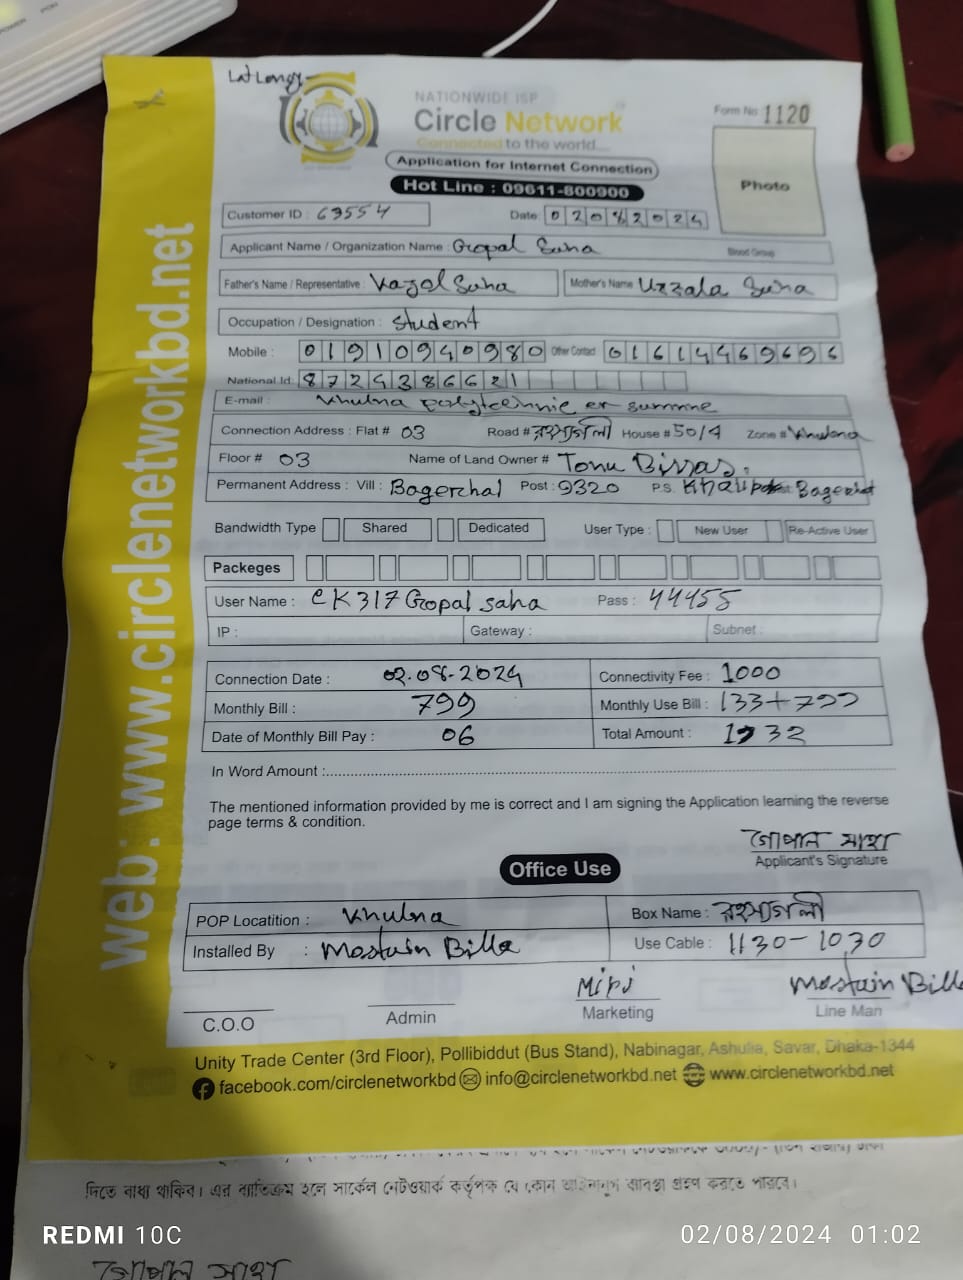 Lat Long
NATIONWIDE ISP
Circle Network
Connected to the world...
Form No 1120
Application for Internet Connection
Hot Line : 09611-800900
Photo
Customer ID : 63554 Date: 02082024
Applicant Name / Organization Name : Gopal Saha Blood Group
Father's Name / Representative : Kajol Saha Mother's Name Uzzala Saha
Occupation / Designation : Student
Mobile : 01910940980 Other Contact 01614469696
National Id. 8724386621
E-mail : Khulna polytechnic er samne
Connection Address : Flat # 03 Road # House # 50/4 Zone # Khulna
Floor # 03 Name of Land Owner # Tonu Birras.
Permanent Address : Vill : Bagerhat Post : 9320 P.S. Bagerhat
Bandwidth Type Shared Dedicated User Type : New User Re-Active User
Packeges
User Name : CK317Gopal saha Pass : 44455
IP : Gateway : Subnet :
Connection Date : 02.08.2024 Connectivity Fee : 1000
Monthly Bill : 799 Monthly Use Bill : 133+799
Date of Monthly Bill Pay : 06 Total Amount : 1932
In Word Amount :
The mentioned information provided by me is correct and I am signing the Application learning the reverse
page terms & condition.
গোপাল সাহা
Applicant's Signature
Office Use
POP Locatition : Khulna Box Name :
Installed By : Mostain Billa Use Cable : 1130-1030
Mostain Billa
C.O.O Admin Marketing Line Man
Unity Trade Center (3rd Floor), Pollibiddut (Bus Stand), Nabinagar, Ashulia, Savar, Dhaka-1344
facebook.com/circlenetworkbd info@circlenetworkbd.net www.circlenetworkbd.net
web: www.circlenetworkbd.net
দিতে বাধ্য থাকিব। এর ব্যতিক্রম হলে সার্কেল নেটওয়ার্ক কর্তৃপক্ষ যে কোন আইনানুগ ব্যবস্থা গ্রহণ করতে পারবে।
গোপাল সাহা
REDMI 10C 02/08/2024 01:02